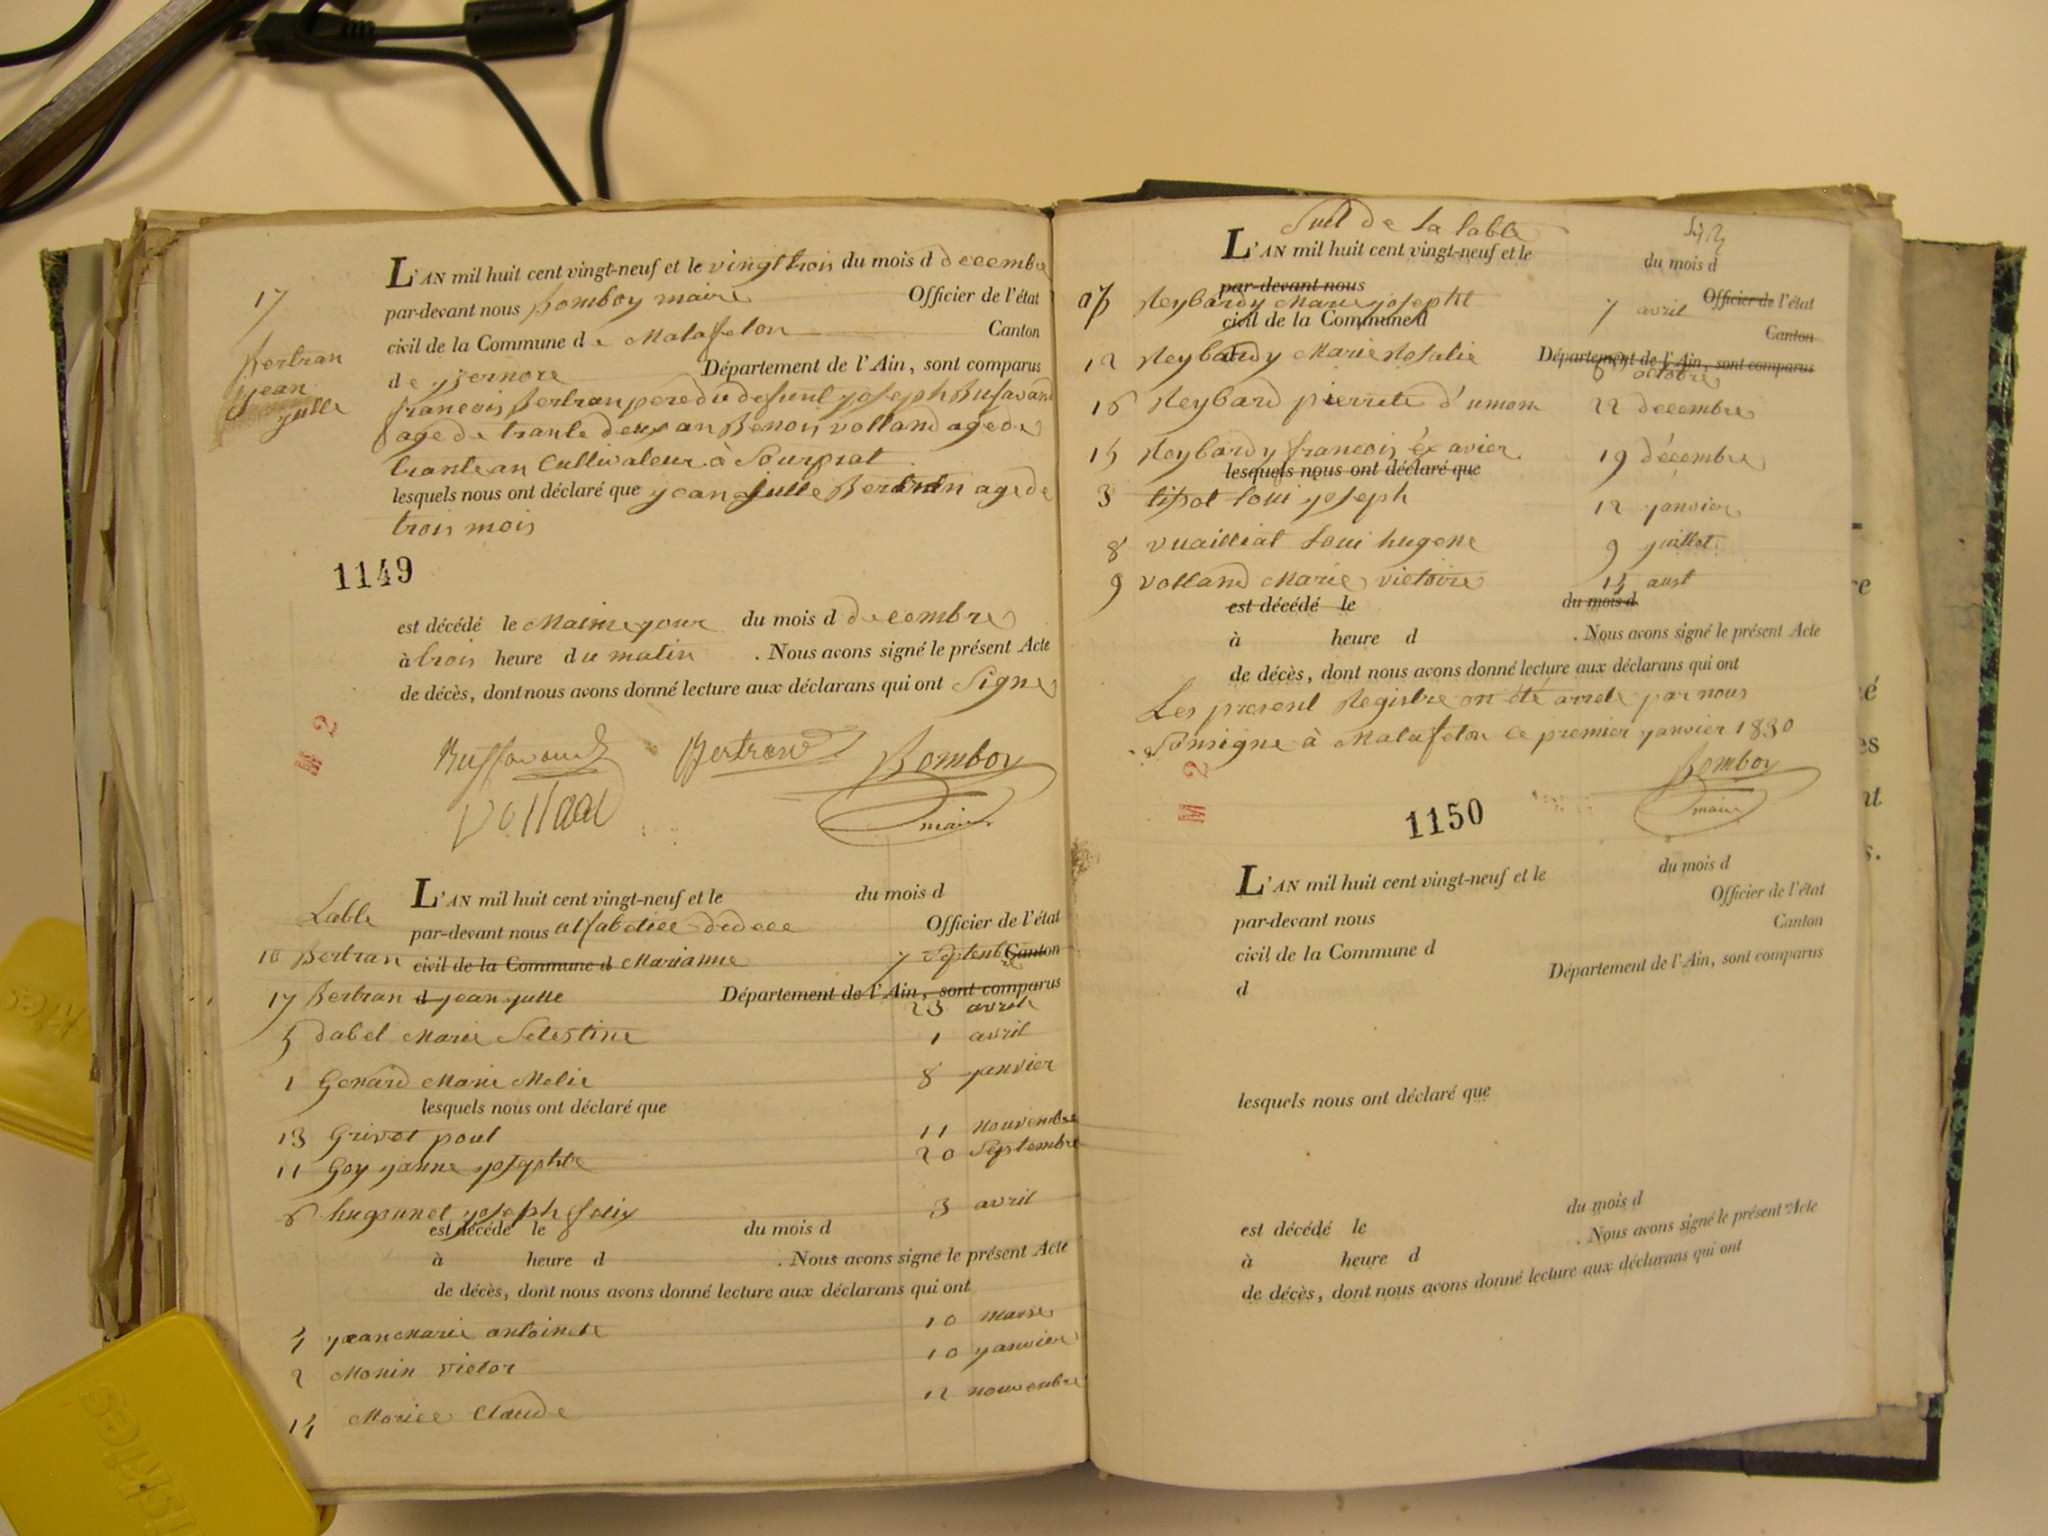 L'AN mil huit cent vingt-neuf et le vingt trois du mois d decembre
17
par-devant nous Bomboy maire Officier de l'état
civil de la Commune de Matafelon Canton
Bertran
jean
julle
de yzernore Département de l'Ain, sont comparus
francois Bertran pere du defunt joseph Bufavand
age de trante deux an Benoi volland age de
trante an Cultivateur à Sourprat
lesquels nous ont déclaré que jean julle Bertran age de
trois mois
1149
est décédé le Maime jour du mois d decembre
à trois heure du matin . Nous avons signé le présent Acte
de décès, dont nous avons donné lecture aux déclarans qui ont Signe
M 2
Buffavand Bertrand Bomboy
Volland maire
L'AN mil huit cent vingt-neuf et le du mois d
Table
par-devant nous alfabetice dedece Officier de l'état
10 Bertran civil de la Commune d Marianne 7 Septembre Canton
17 Bertran d jean julle Département de l'Ain, sont comparus
23 avril
5 dabel Marie Selestine 1 avril
1 Genard Marie Melie 8 janvier
lesquels nous ont déclaré que
13 Grivot poul 11 Nouvembre
11 Goy janne josephte 20 Septembre
6 hugounet joseph felix 3 avril
est décédé le du mois d
à heure d . Nous avons signé le présent Acte
de décès, dont nous avons donné lecture aux déclarans qui ont
4 jean Marie antoinete 10 Marse
2 Monin victor 10 janvier
14 Morice Claude 12 nouvenbre
Suit de La table
L'AN mil huit cent vingt-neuf et le du mois d
par-devant nous Officier de l'état
07 Reybardy Marie josephte 7 avril
civil de la Commune d Canton
12 Reybardy Marie Rosalie Département de l'Ain, sont comparus
octobre
16 Reybard pierrete d'umon 22 decembre
15 Reybardy francois éxavier 19 décembre
lesquels nous ont déclaré que
3 tissot loui joseph 12 janvier
8 vuailliat Loui hugene 9 juillet
9 volland Marie victoire 15 aust
est décédé le du mois d
à heure d . Nous avons signé le présent Acte
de décès, dont nous avons donné lecture aux déclarans qui ont
Les present Registre on été arrete par nous
Sousigne à Matafelon le premier janvier 1830
M 2
Bomboy
maire
1150
L'AN mil huit cent vingt-neuf et le du mois d
par-devant nous Officier de l'état
civil de la Commune d Canton
d Département de l'Ain, sont comparus
lesquels nous ont déclaré que
est décédé le du mois d
à heure d . Nous avons signé le présent Acte
de décès, dont nous avons donné lecture aux déclarans qui ont